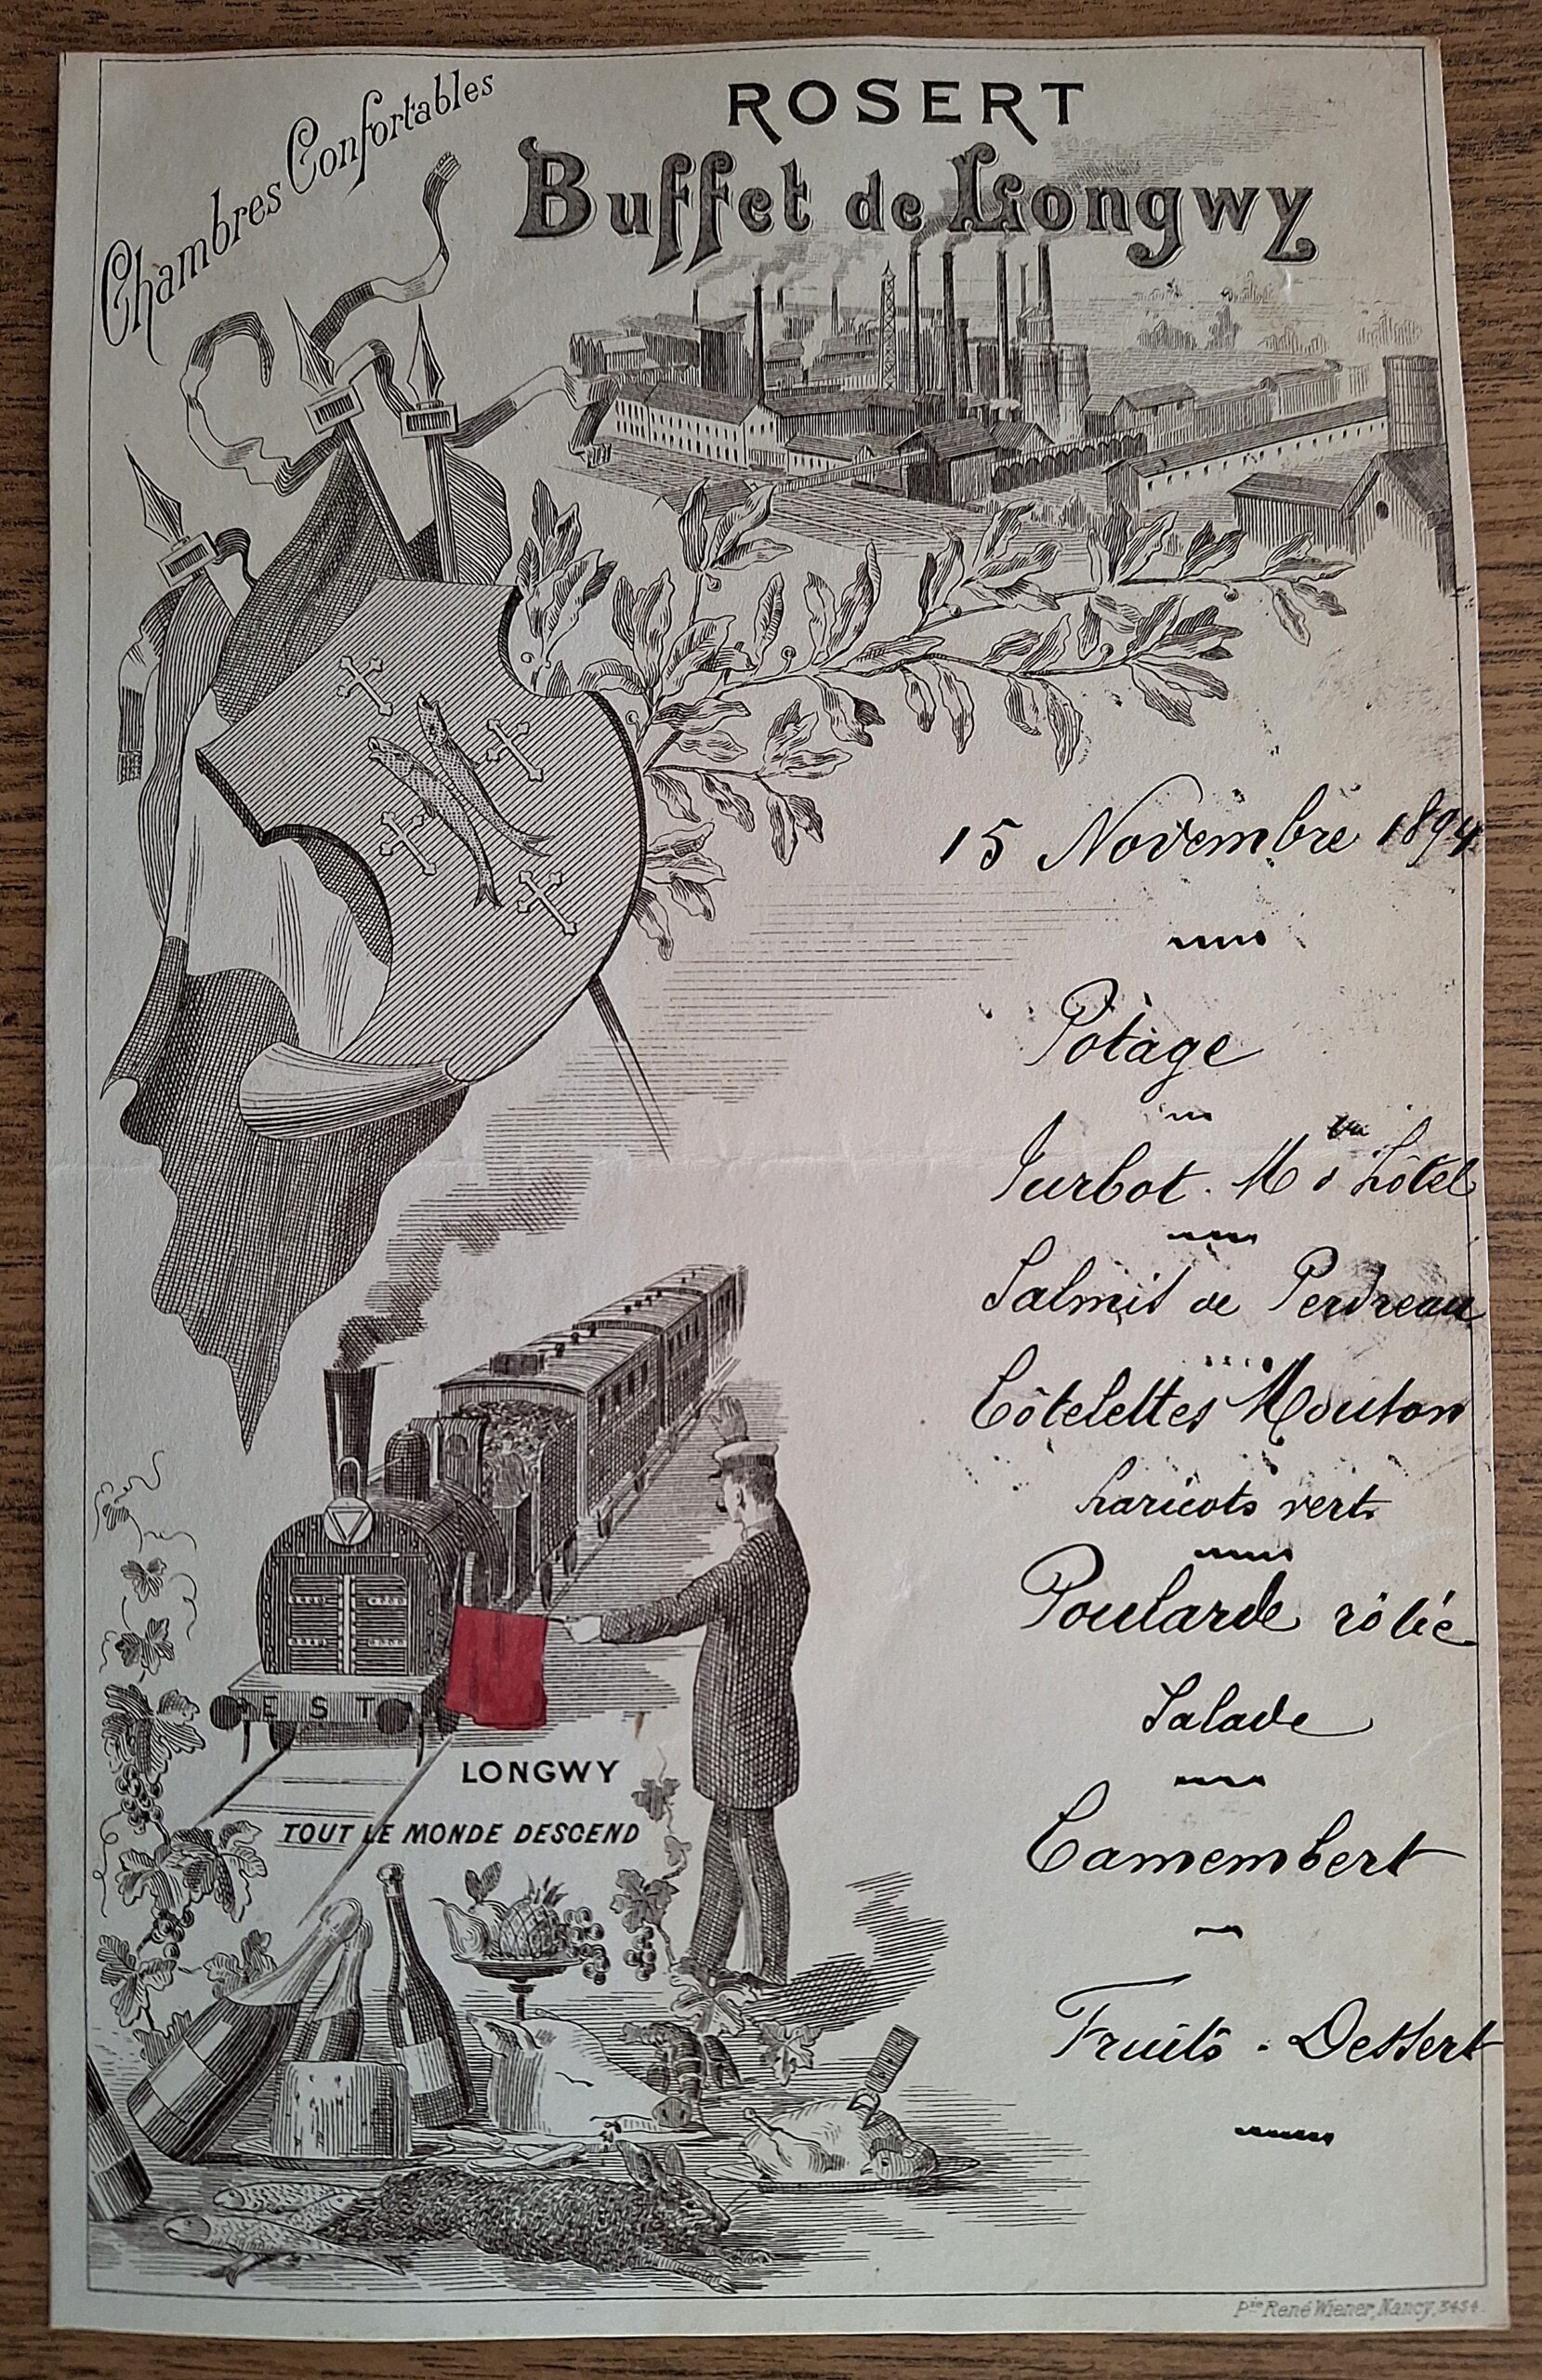 Chambres Confortables
ROSERT
Buffet de Longwy
15 Novembre 1894
Potage
Turbot. M d'hôtel
Salmis de Perdreau
Côtelettes Mouton
haricots verts
Poularde rôtie
Salade
Camembert
Fruits - Dessert
EST
LONGWY
TOUT LE MONDE DESCEND
Pie René Wiener, Nancy, 3454.